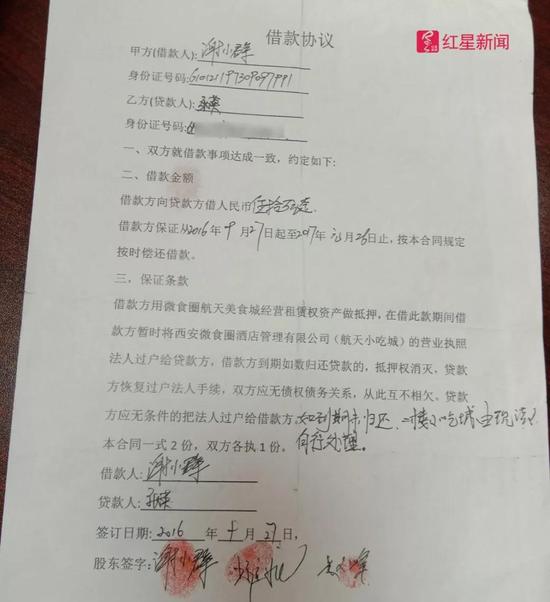 红星新闻
借款协议
甲方(借款人): 谢小群
身份证号码:
乙方(贷款人):
身份证号码:
一、双方就借款事项达成一致，约定如下:
二、借款金额
借款方向贷款方借人民币伍拾万
借款方保证从2016年十月27日起至2017年 月26日止，按本合同规定
按时偿还借款。
三，保证条款
借款方用微食圈航天美食城经营租赁权资产做抵押，在借此款期间借
款方暂时将西安微食圈酒店管理有限公司（航天小吃城）的营业执照
法人过户给贷款方，借款方到期如数归还贷款的，抵押权消灭，贷款
方恢复过户法人手续，双方应无债权债务关系，从此互不相欠。贷款
方应无条件的把法人过户给借款方，如到期未归还、二楼小吃城由现法人
自行处理。
本合同一式2份，双方各执1份。
借款人: 谢小群
贷款人:
签订日期: 2016 年 十 月 27 日，
股东签字: 谢小群